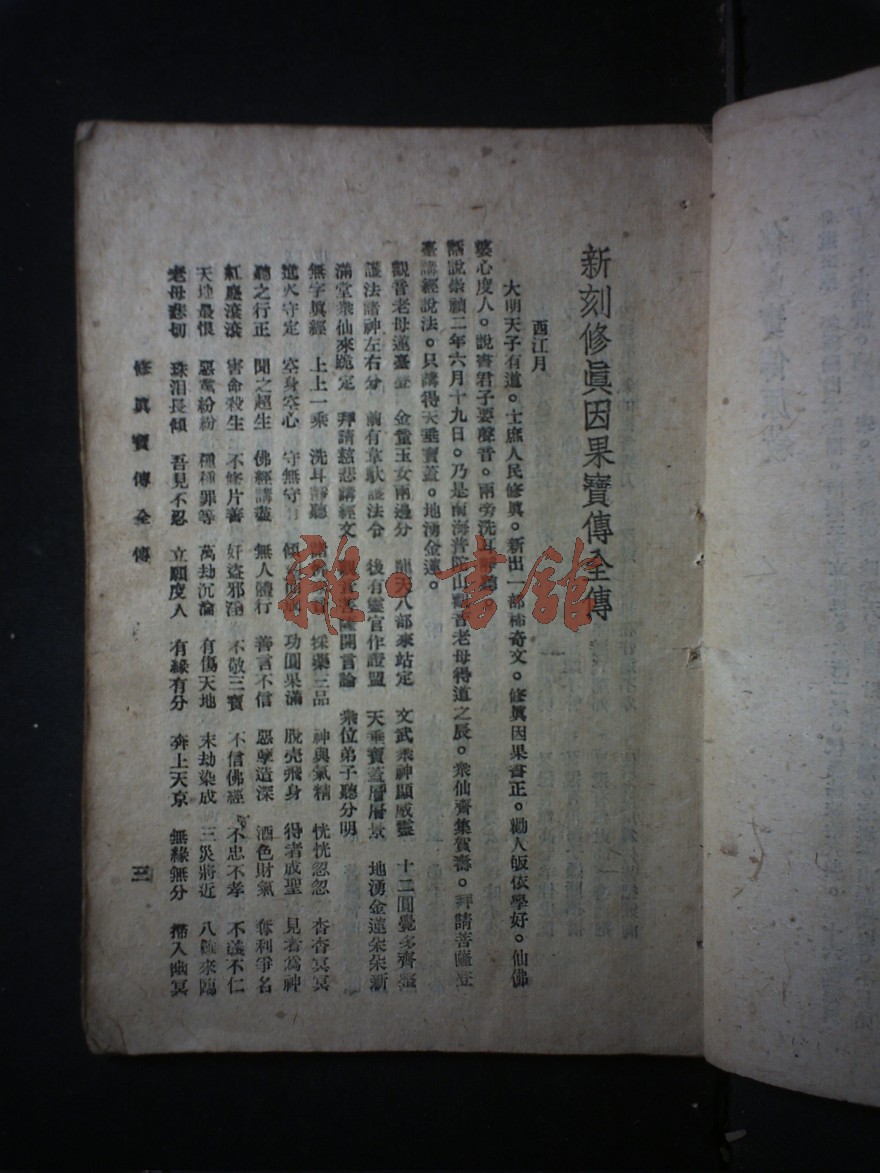 新刻修眞因果寶傳全傳
西江月
大明天子有道。士庶人民修眞。新出一部稀奇文。修眞因果書正。勸人皈依學好。仙佛
婆心度人。說書君子要聲音。兩旁洗耳
話說崇禎二年六月十九日。乃是南海普陀山觀音老母得道之辰。衆仙齊集賀壽。拜請菩薩登
臺講經說法。只講得天垂寶蓋。地湧金蓮。
觀音老母蓮臺 金童玉女兩邊分 龍天八部來站定 文武衆神顯威靈 十二圓覺多齊
護法諸神左右分 前有韋馱護法令 後有靈官作證盟 天垂寶蓋層層景 地湧金蓮朶朶新
滿堂衆仙來跪定 拜請慈悲講經文 開言論 衆位弟子聽分明
無字眞經 上上一乘 洗耳靜聽 採藥三品 神與氣精 恍恍忽忽 杳杳冥冥
進火守定 空身空心 守無守 功圓果滿 脫壳飛身 得者成聖 見者爲神
聽之行正 聞之超生 佛經講盡 無人體行 善言不信 惡孽造深 酒色財氣 奪利爭名
紅塵滾滾 害命殺生 不修片善 奸盜邪淫 不敬三寶 不信佛經 不忠不孝 不義不仁
天地最恨 惡黨紛紛 種種罪等 萬劫沉淪 有傷天地 末劫染成 三災將近 八難來臨
老母悲切 珠泪長傾 吾見不忍 立願度人 有緣有分 奔上天京 無緣無分 掃入幽冥
修眞寶傳全傳
三
雅·書館